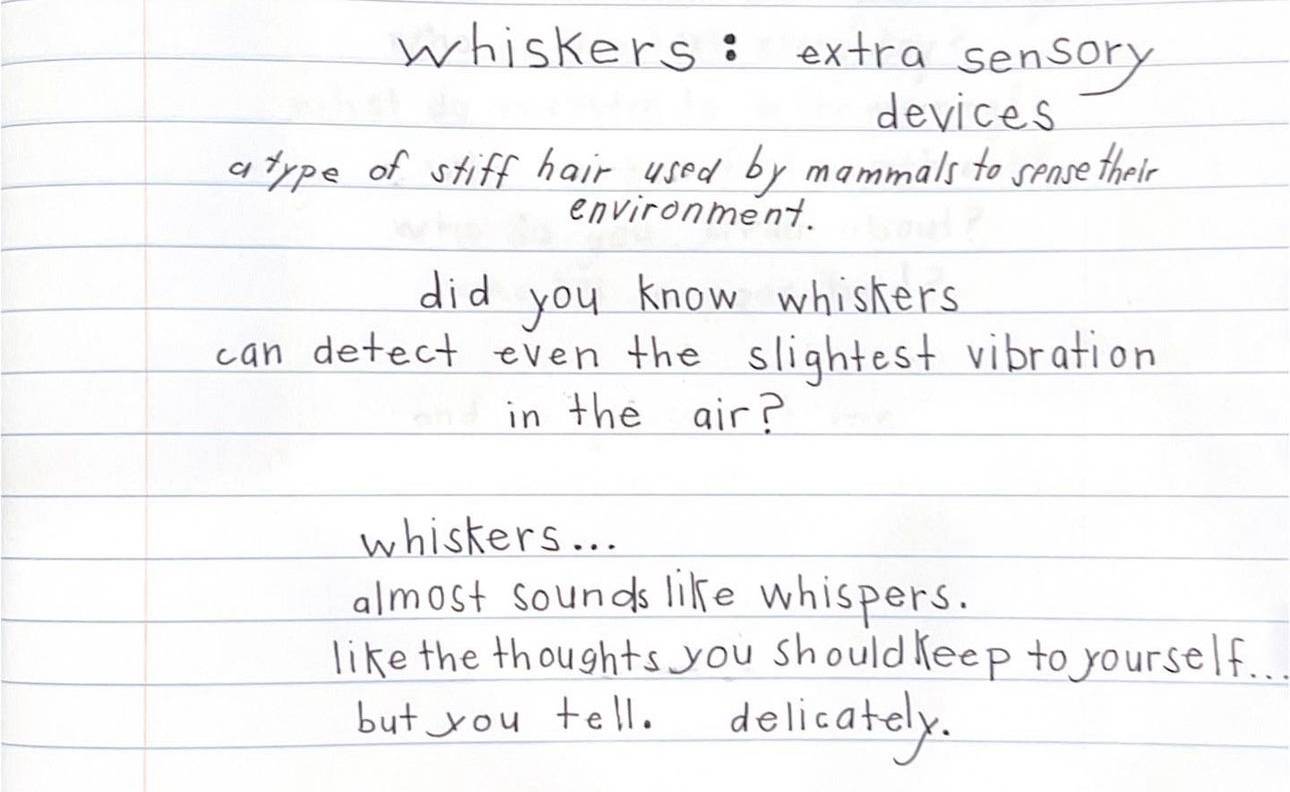 whiskers: extra sensory
devices
a type of stiff hair used by mammals to sense their
environment.
did you know whiskers
can detect even the slightest vibration
in the air?
whiskers...
almost sounds like whispers.
like the thoughts you should keep to yourself...
but you tell. delicately.